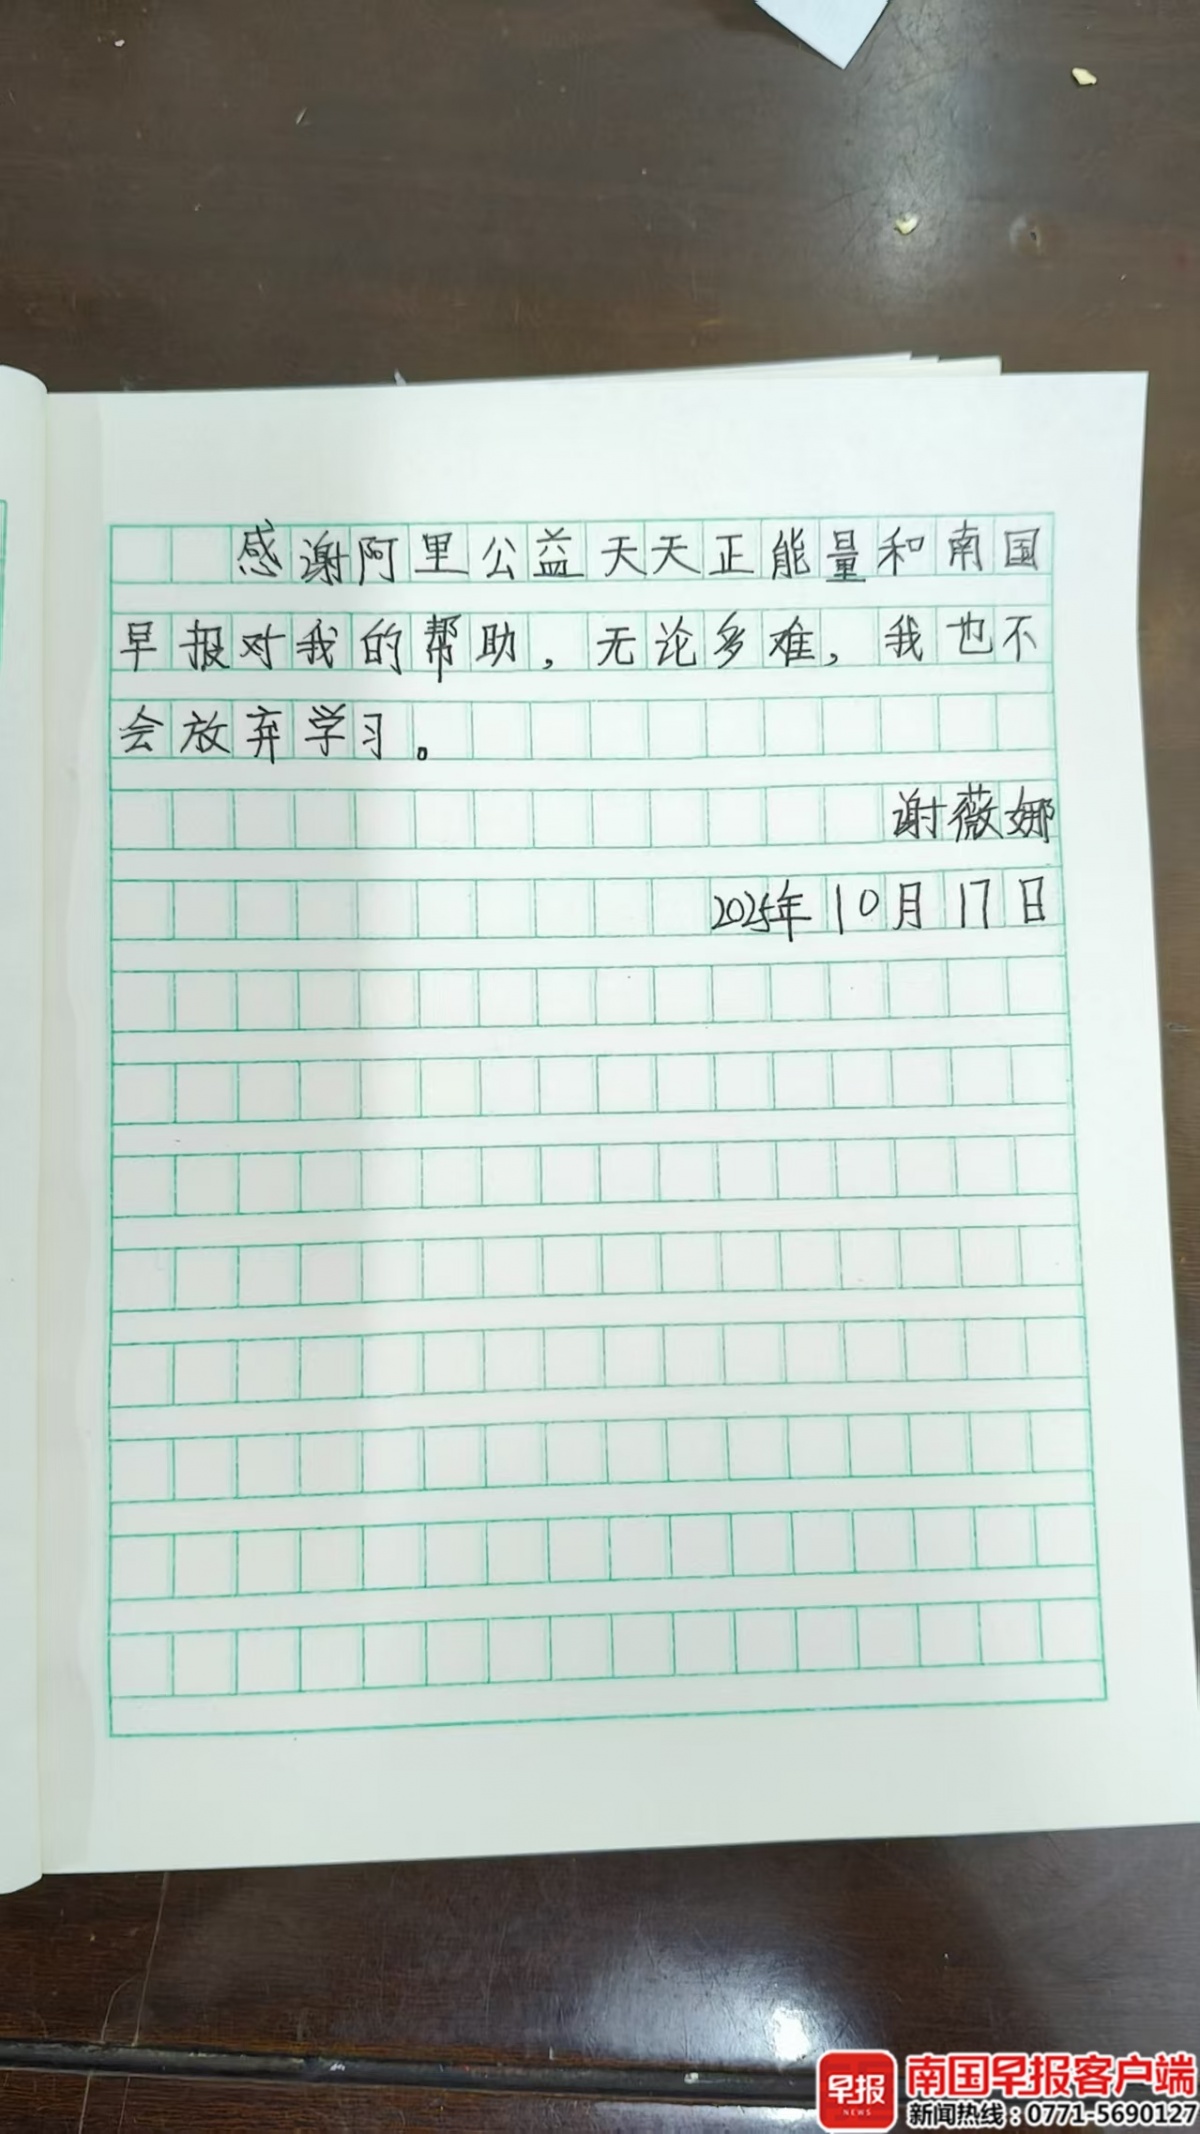 感谢阿里公益天天正能量和南国
早报对我的帮助，无论多难，我也不
会放弃学习。
谢薇娜
2025年10月17日
早报
NEWS
南国早报客户端
新闻热线：0771-5690127